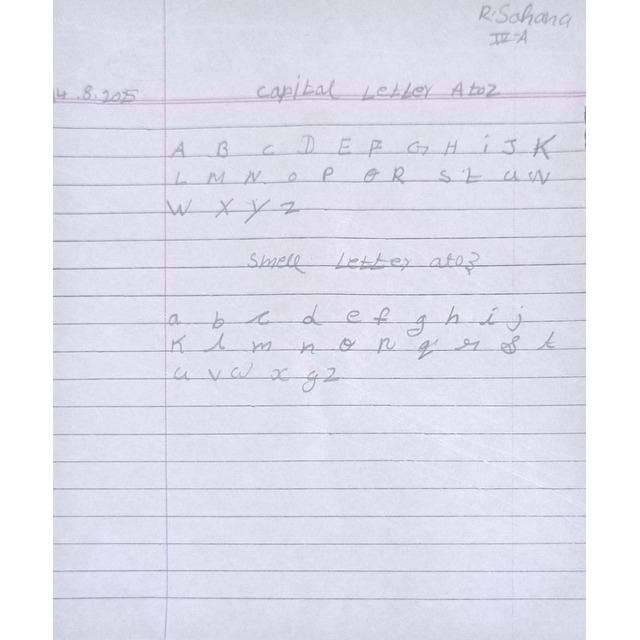 R. Sahana
IV-A
4.8.2025
Capital Letter A to Z
A B C D E F G H i J K
L M N O P Q R S t U N
W X Y Z
Smell Letter a to z
a b c d e f g h i j
K l m n o p q r s t
u v w x y z